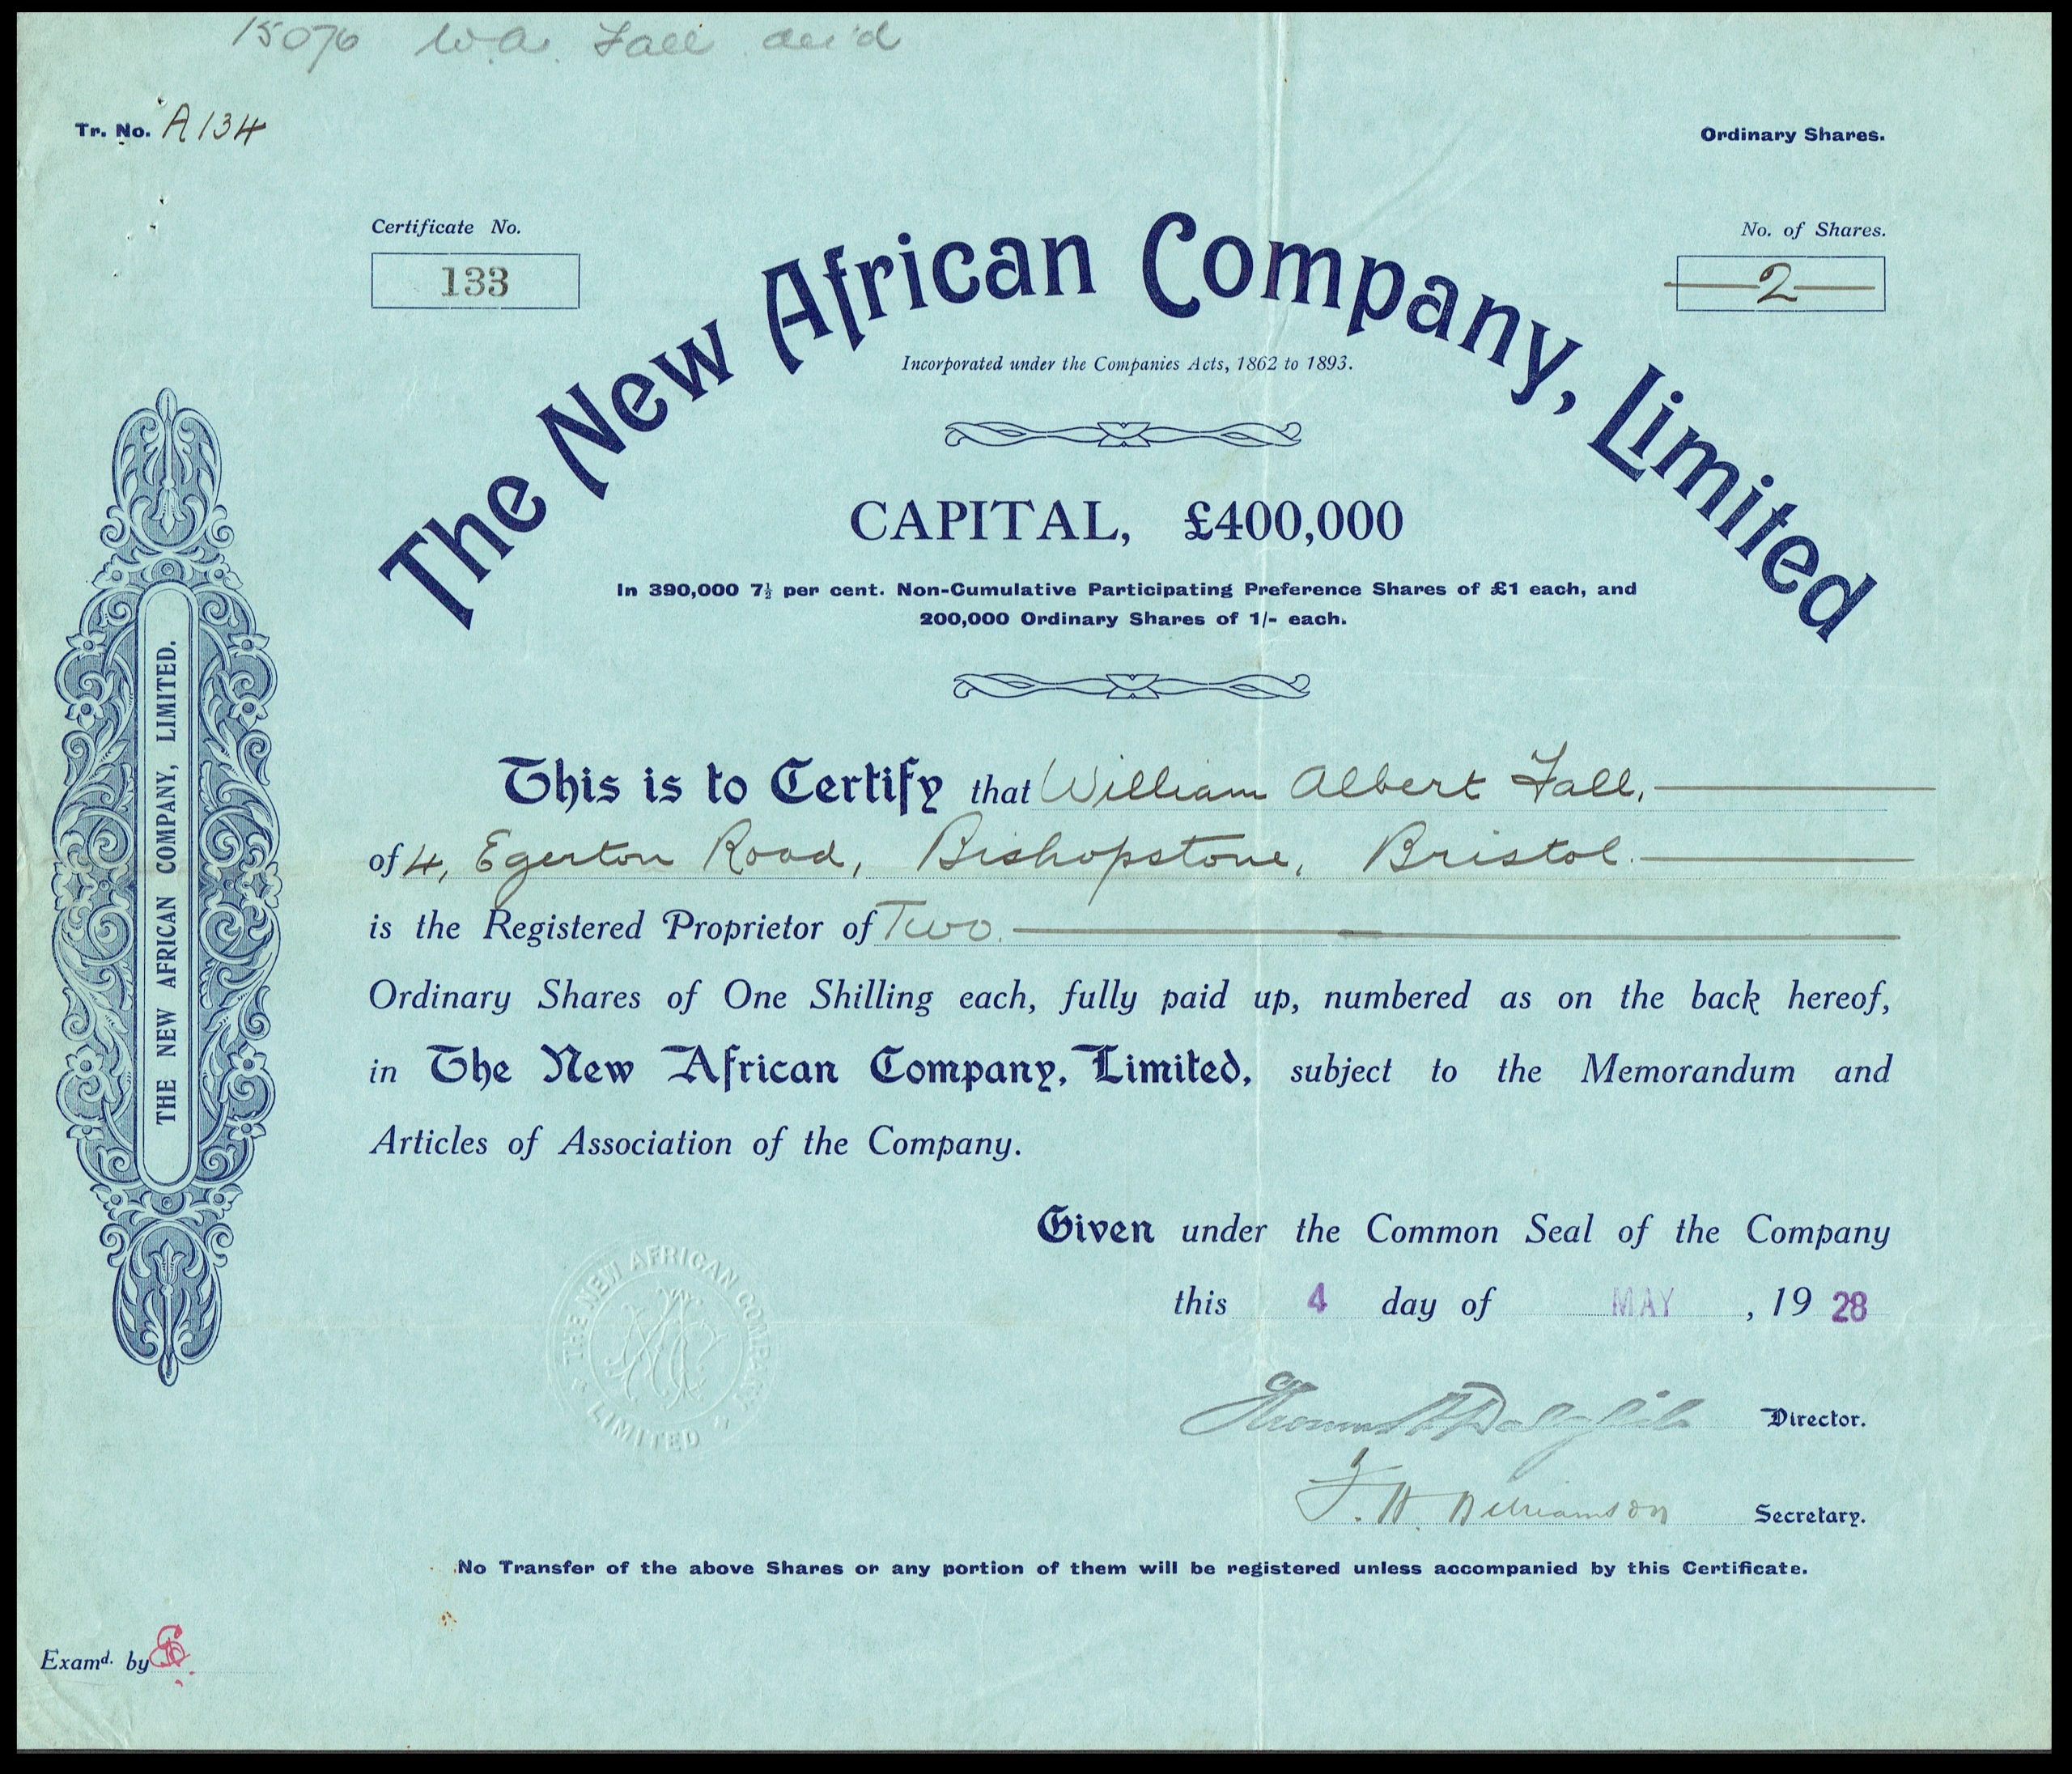 15070 W.A. Fall dec'd
Tr. No. A134
Ordinary Shares.
Certificate No.
133
No. of Shares.
2
The New African Company, Limited
Incorporated under the Companies Acts, 1862 to 1893.
CAPITAL, £400,000
In 390,000 7½ per cent. Non-Cumulative Participating Preference Shares of £1 each, and
200,000 Ordinary Shares of 1/- each.
THE NEW AFRICAN COMPANY, LIMITED.
This is to Certify that William Albert Fall,
of 4, Egerton Road, Bishopstone, Bristol.
is the Registered Proprietor of Two.
Ordinary Shares of One Shilling each, fully paid up, numbered as on the back hereof,
in The New African Company, Limited, subject to the Memorandum and
Articles of Association of the Company.
Given under the Common Seal of the Company
this 4 day of MAY, 1928
THE NEW AFRICAN COMPANY
LIMITED
Director.
F. H. Williamson Secretary.
No Transfer of the above Shares or any portion of them will be registered unless accompanied by this Certificate.
Examd. by